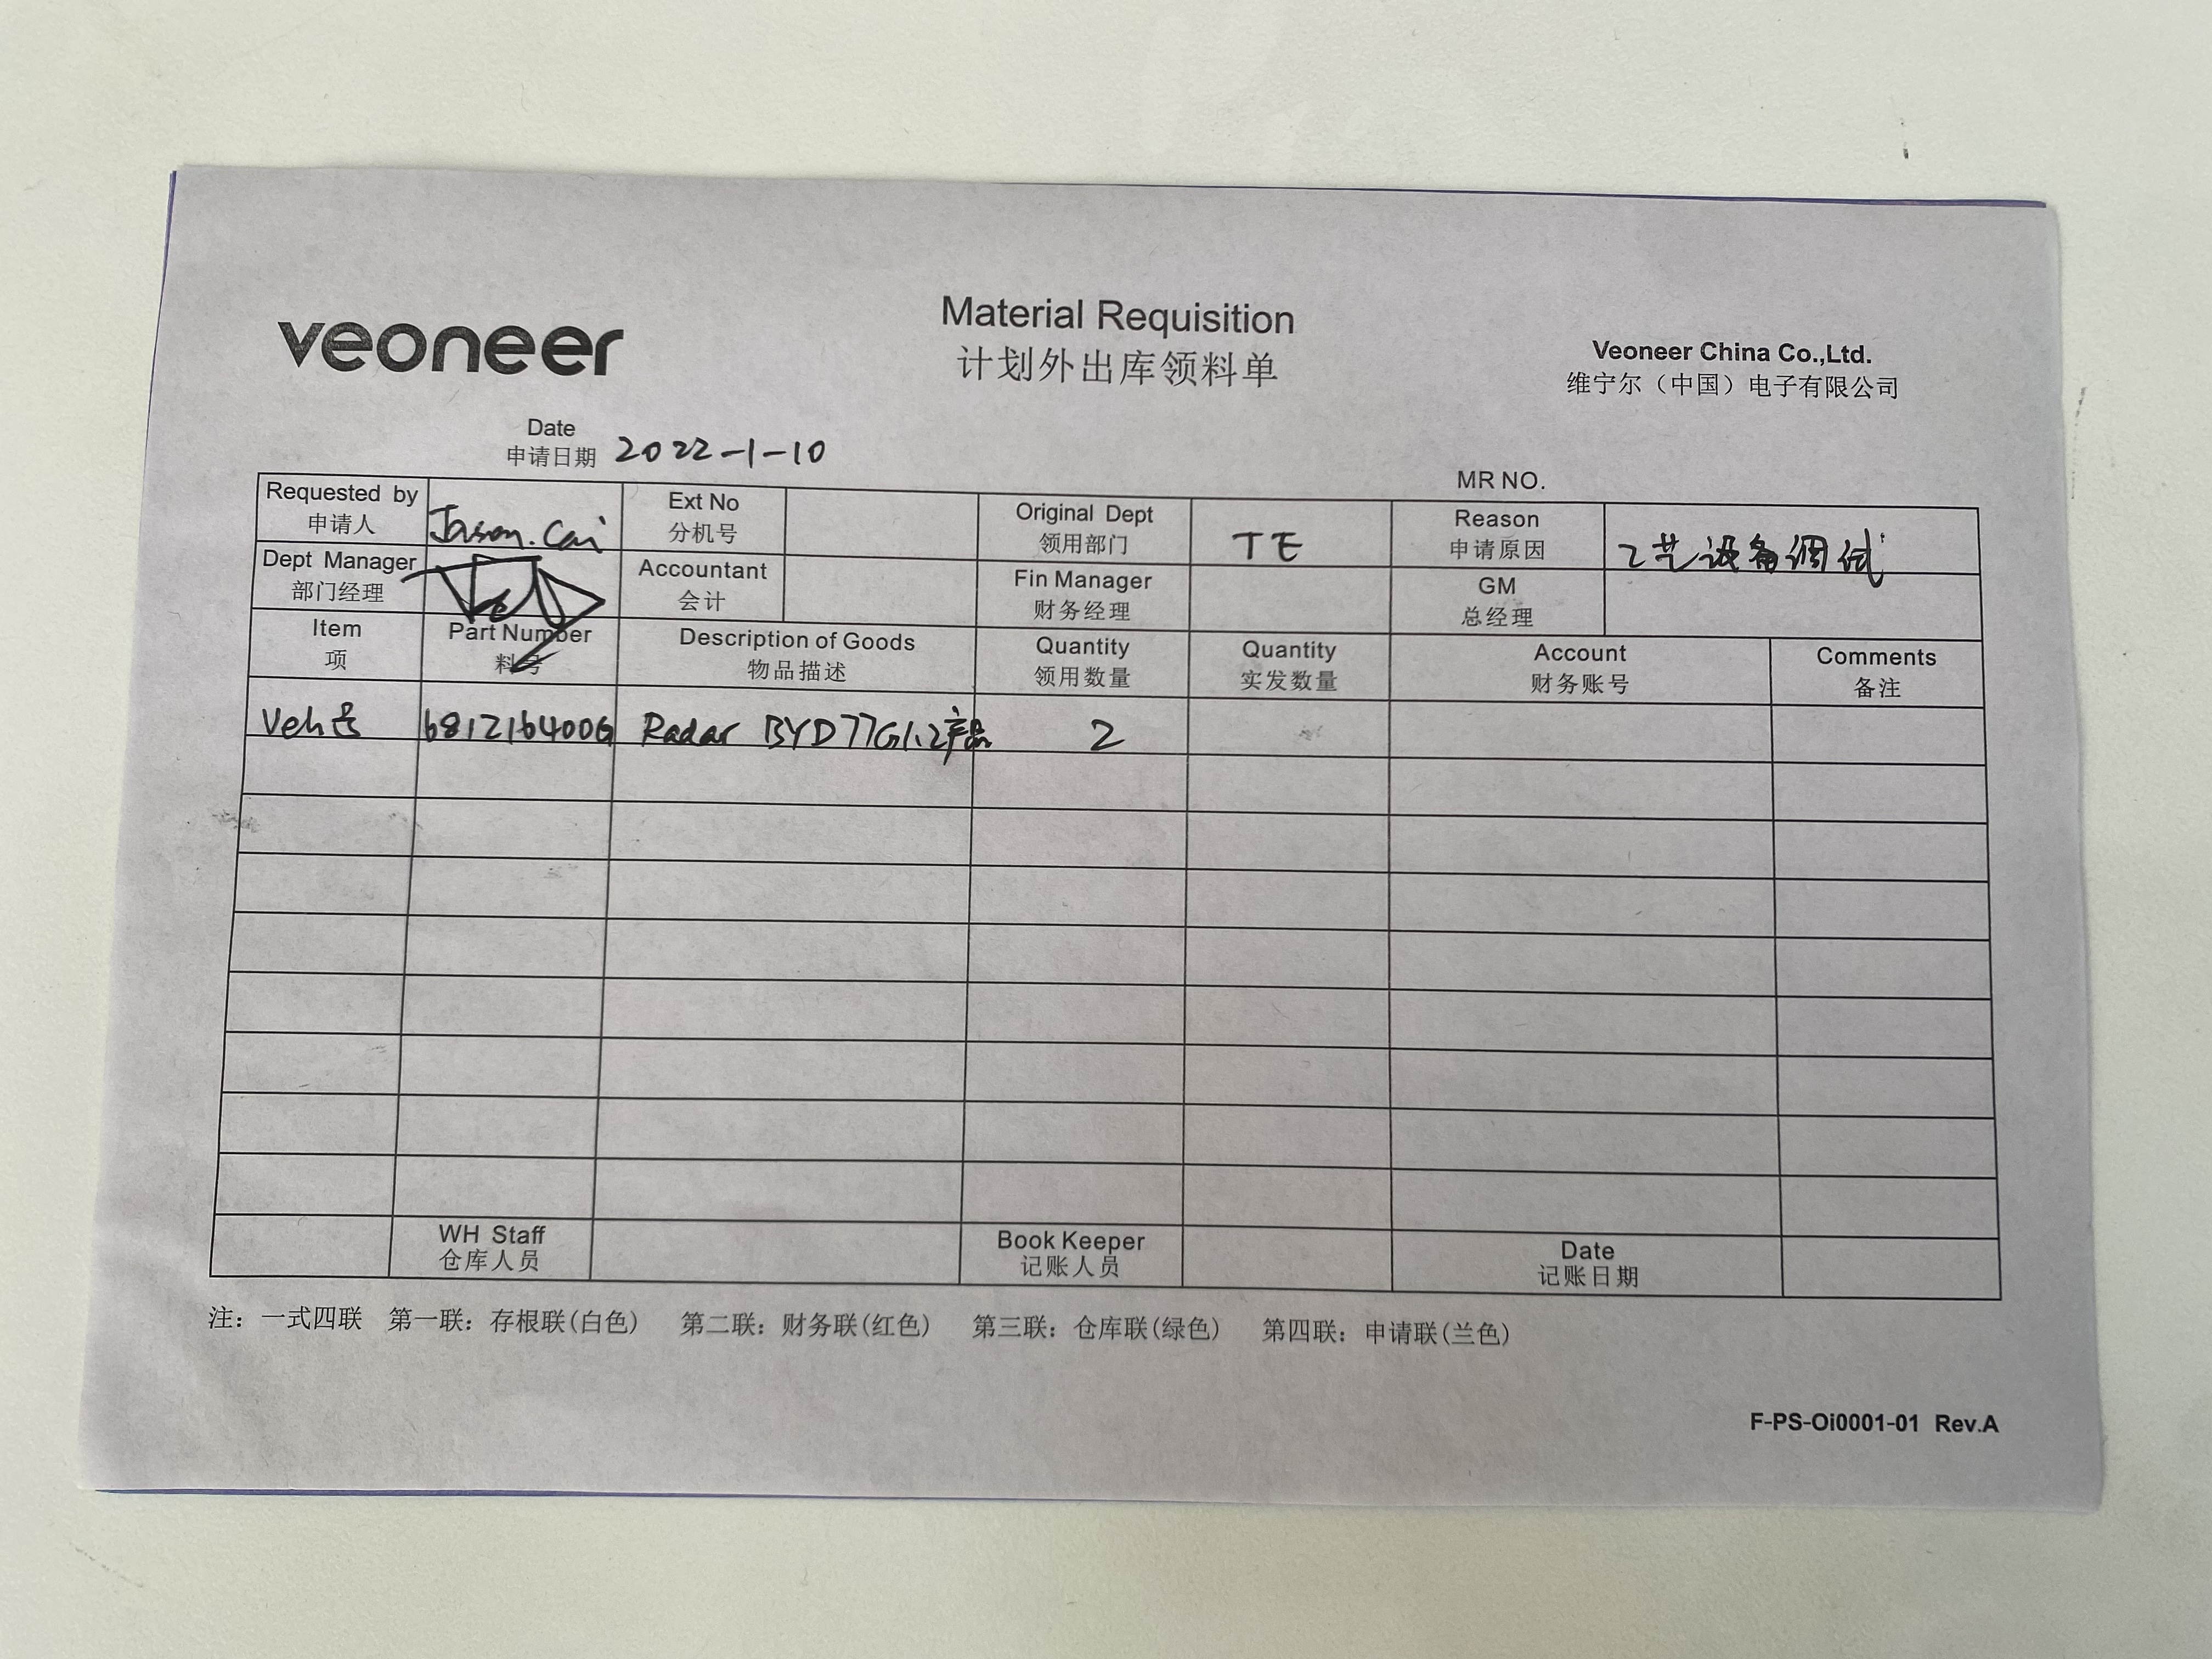 veoneer
Material Requisition
计划外出库领料单
Veoneer China Co.,Ltd.
维宁尔（中国）电子有限公司
Date
申请日期 2022-1-10
MR NO.
Requested by
申请人
Jason.Cai
Ext No
分机号
Original Dept
领用部门
TE
Reason
申请原因
工艺设备调试
Dept Manager
部门经理
Accountant
会计
Fin Manager
财务经理
GM
总经理
Item
项
Part Number
料号
Description of Goods
物品描述
Quantity
领用数量
Quantity
实发数量
Account
财务账号
Comments
备注
Veh号 681216400G Radar BYD77G1.2产品 2
WH Staff
仓库人员
Book Keeper
记账人员
Date
记账日期
注：一式四联 第一联：存根联(白色) 第二联：财务联(红色) 第三联：仓库联(绿色) 第四联：申请联(兰色)
F-PS-Oi0001-01 Rev.A